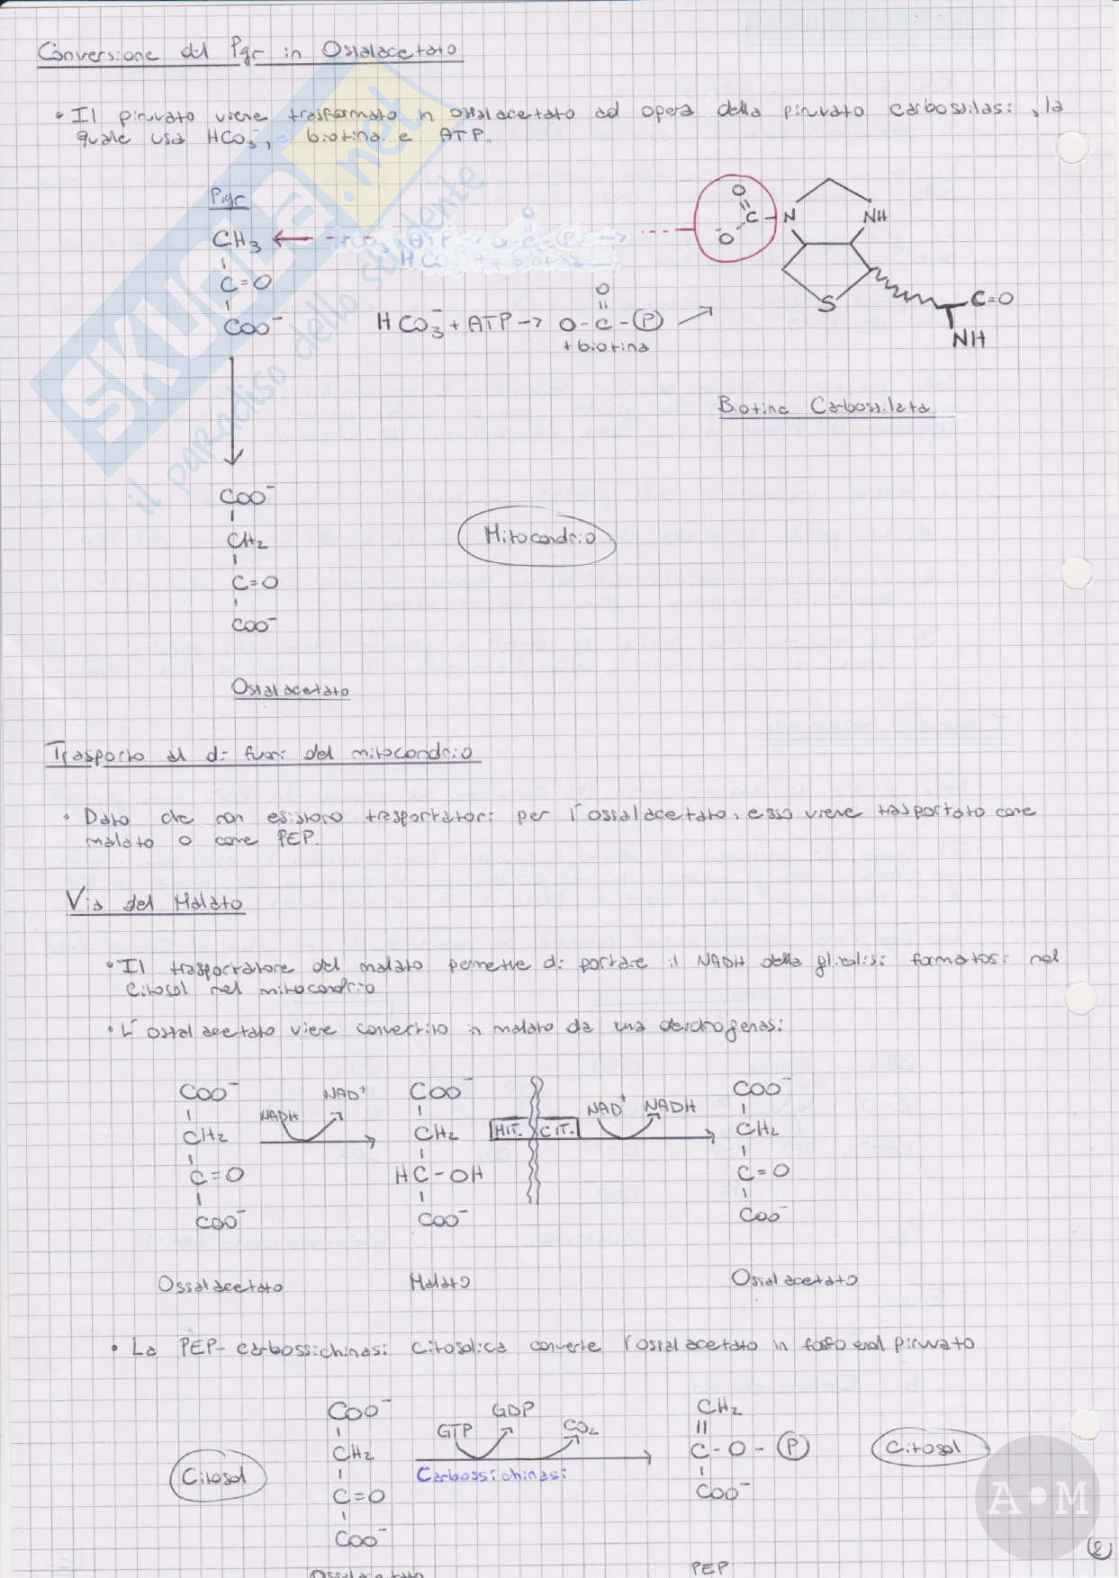 Conversione del Pyr in Ossalacetato
• Il piruvato viene trasformato in ossalacetato ad opera della piruvato carbossilasi, la
quale usa HCO3-, biotina e ATP.
Pyr
CH3
C=O
COO-
HCO3- + ATP → O-C-(P)
O
+ biotina
O
C-N
O-
NH
S
C=O
NH
Botina Carbossilata
COO-
CH2
C=O
COO-
Mitocondrio
Ossalacetato
Trasporto al di fuori del mitocondrio
• Dato che non esistono trasportatori per l'ossalacetato, esso viene trasportato come
malato o come PEP.
Via del Malato
• Il trasportatore del malato permette di portare il NADH della glicolisi formatosi nel
citosol nel mitocondrio
• L'ossalacetato viene convertito in malato da una deidrogenasi
COO- NADH NAD+ COO- NAD+ NADH COO-
CH2 CH2 MIT. CIT. CH2
C=O HC-OH C=O
COO- COO- COO-
Ossalacetato Malato Ossalacetato
• La PEP-carbossichinasi citosolica converte l'ossalacetato in fosfoenol piruvato
COO- GTP GDP CO2 CH2
CH2 C-O-(P)
Citosol Carbossichinasi Citosol
C=O COO-
COO-
Ossalacetato PEP
SKUOLA.net
il paradiso dello studente
A•M
2